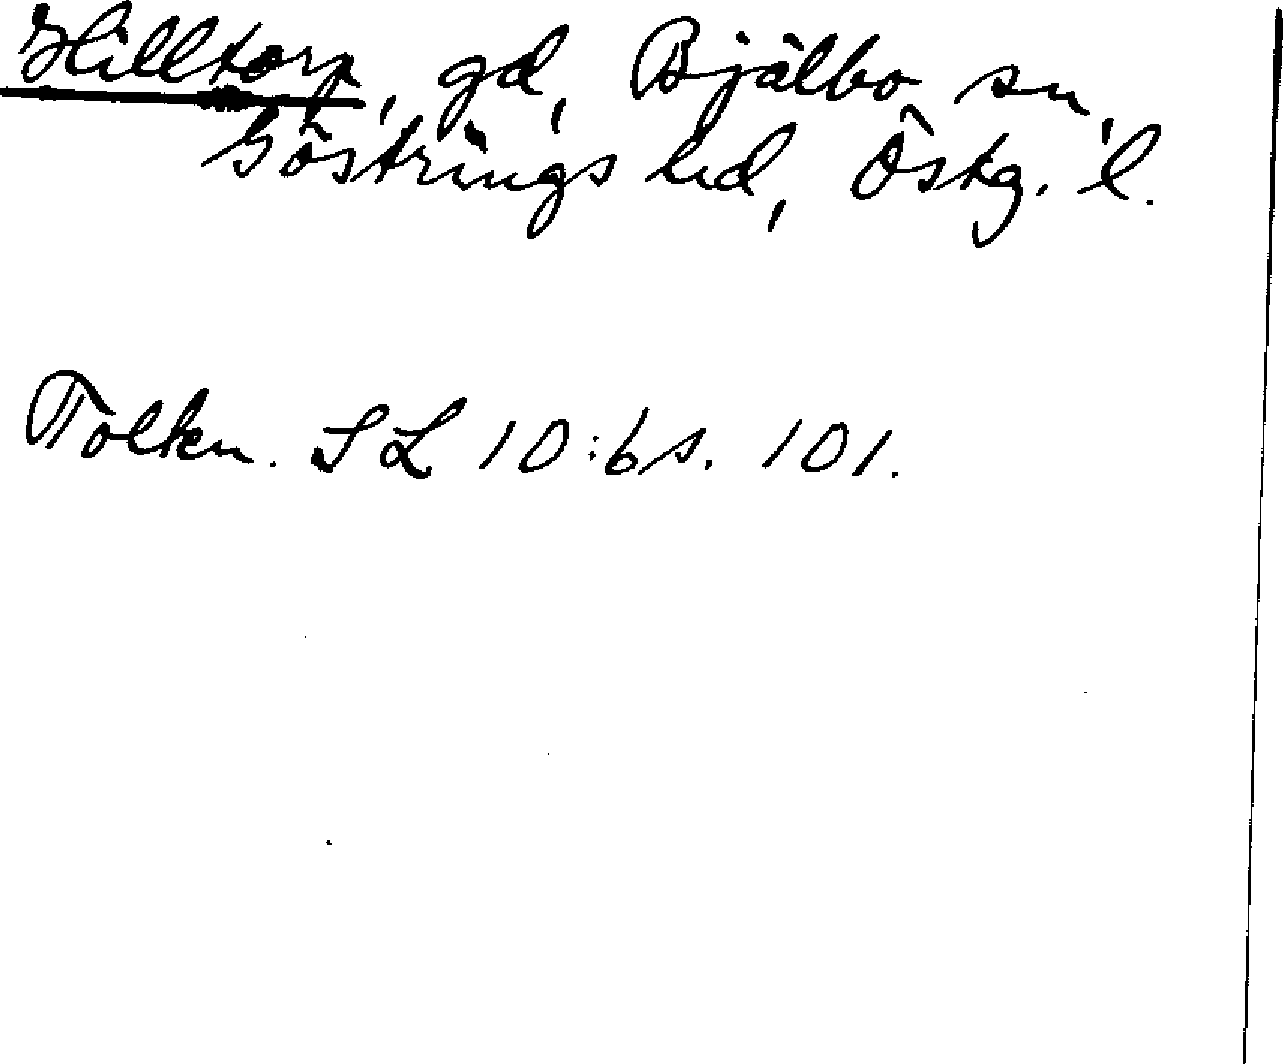 Hilltorp, gd, Bjälbo sn,
Göstrings hd, Östg. l.
Tolkn. SL 10:6 s. 101.